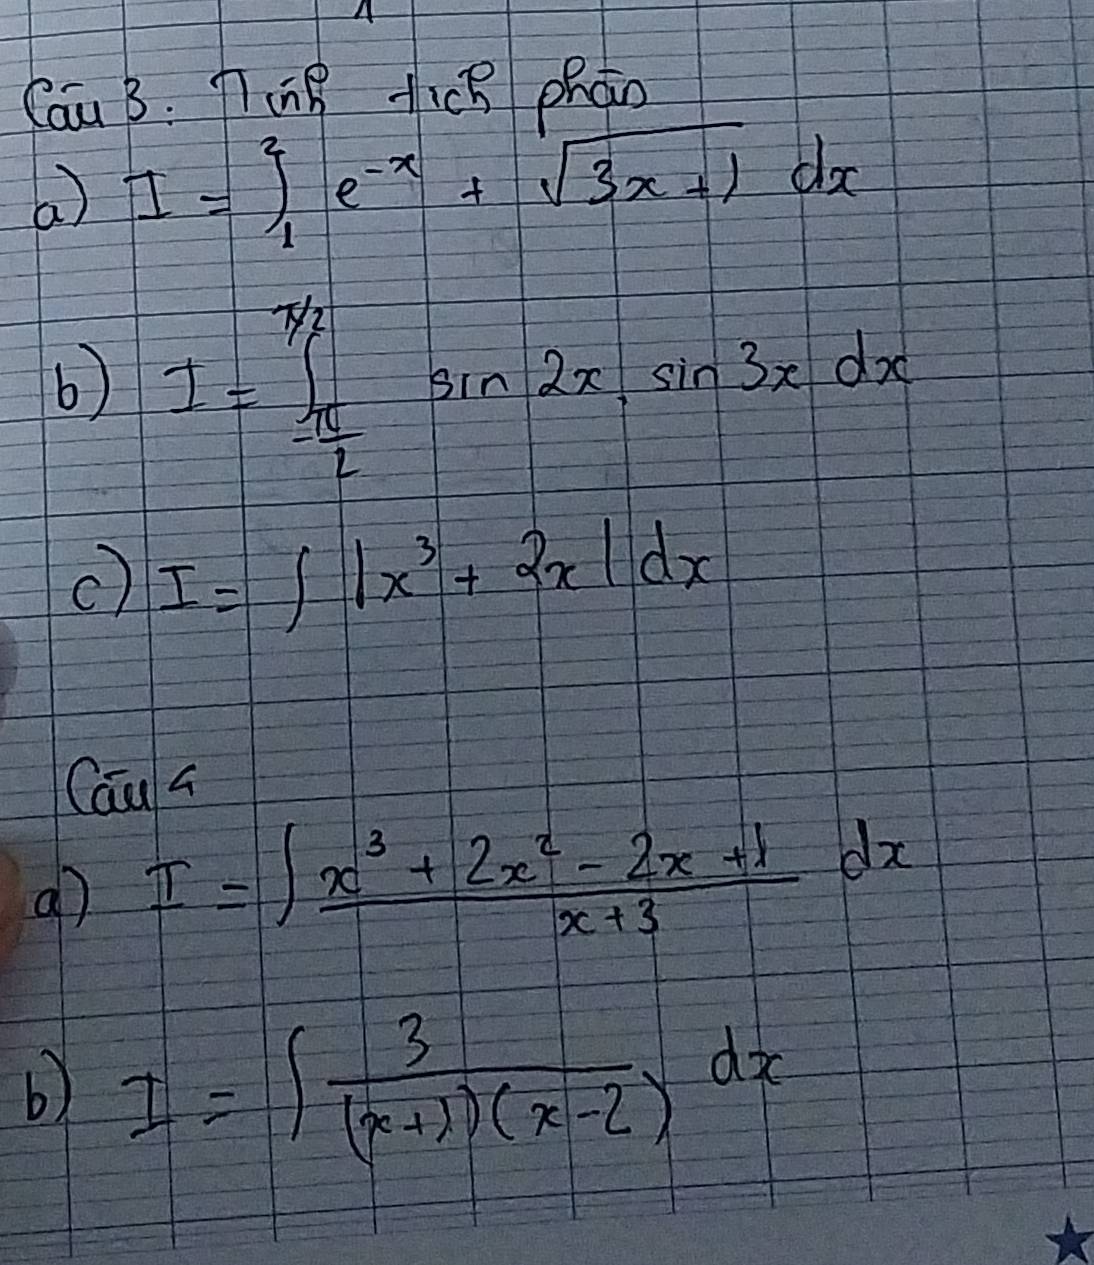 Câu 3: Tính tích phân
a) I = ∫₁² e⁻ˣ + √(3x+1) dx
b) I = ∫_{-π/2}^{π/2} sin 2x. sin 3x dx
c) I = ∫ |x³ + 2x| dx
Câu 4
a) I = ∫ (x³ + 2x² - 2x + 1)/(x + 3) dx
b) I = ∫ 3/((x+1)(x-2)) dx